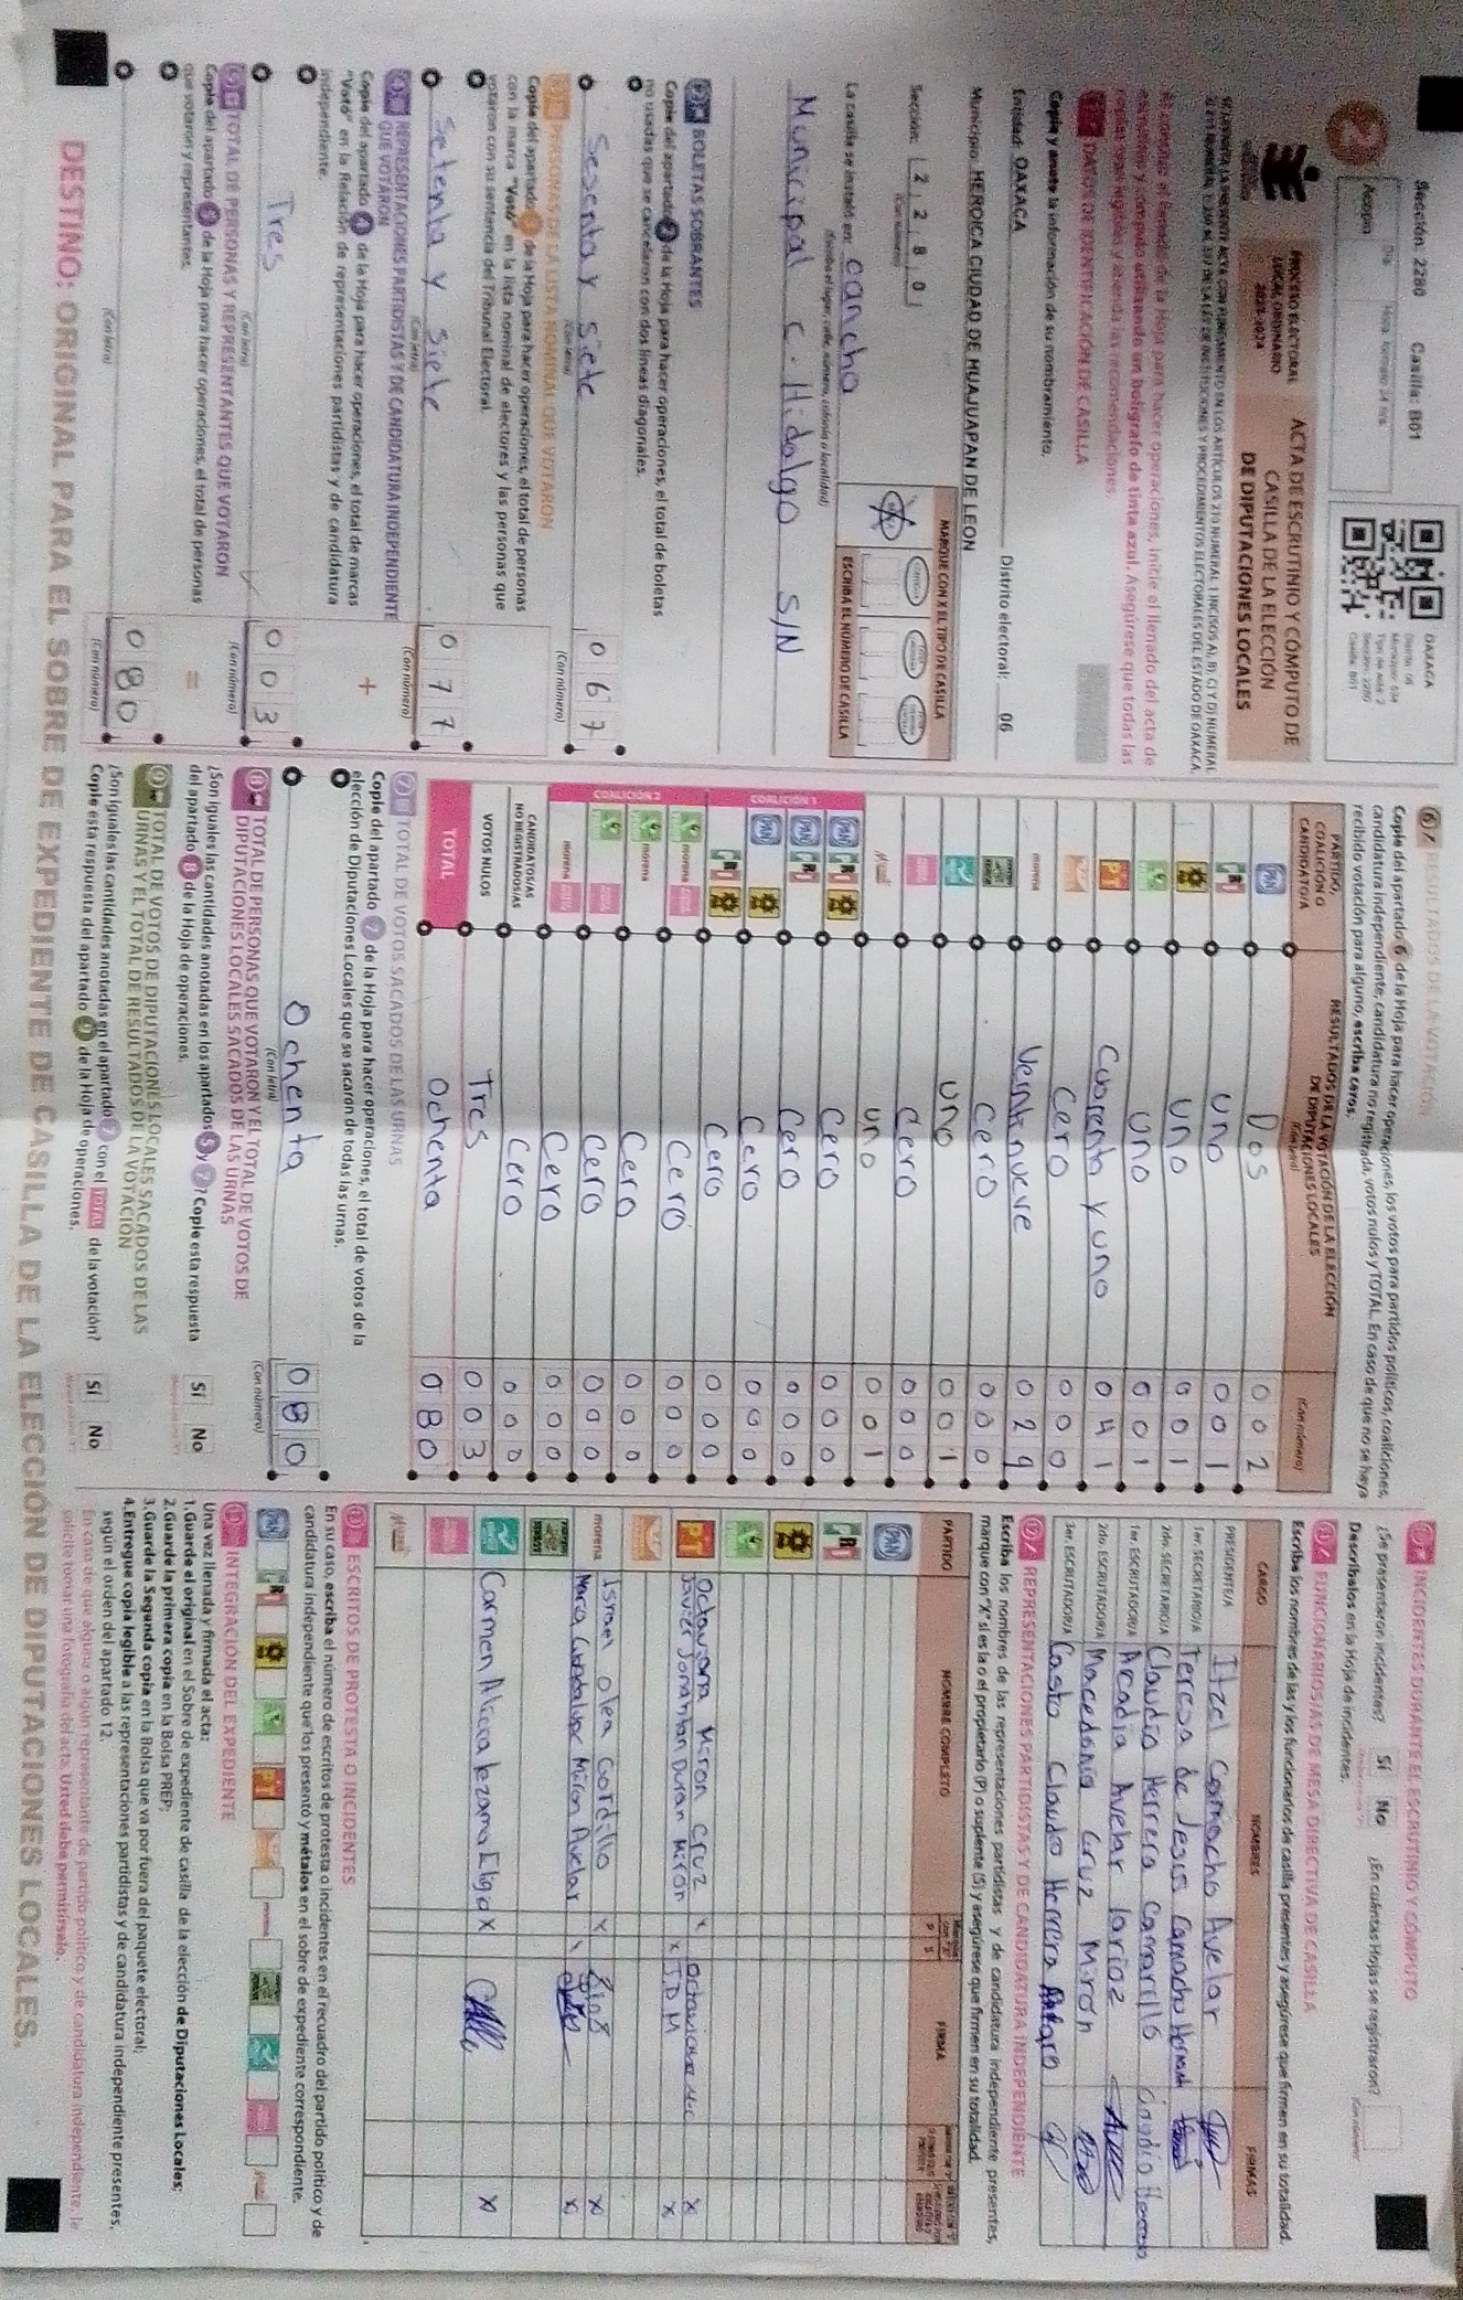 Sección: 2280 Casilla: B01
Acopio
Día Hora, formato 24 hrs
OAXACA
Distrito: 06
Tipo de acta: 2
Sección: 2280
Casilla: B01
PROCESO ELECTORAL
LOCAL ORDINARIO
2023-2024
ACTA DE ESCRUTINIO Y CÓMPUTO DE
CASILLA DE LA ELECCIÓN
DE DIPUTACIONES LOCALES
Al concluir el llenado de la Hoja para hacer operaciones, inicie el llenado del acta de
escrutinio y cómputo utilizando un bolígrafo de tinta azul. Asegúrese que todas las
copias sean legibles y atienda las recomendaciones.
1 DATOS DE IDENTIFICACIÓN DE CASILLA
Copie y anote la información de su nombramiento.
Entidad: OAXACA Distrito electoral: 06
Municipio: HEROICA CIUDAD DE HUAJUAPAN DE LEON
Sección: 2 2 8 0
(Con número)
MARQUE CON X EL TIPO DE CASILLA
ESCRIBA EL NÚMERO DE CASILLA
La casilla se instaló en: cancha
(Escriba el lugar, calle, número, colonia o localidad)
Municipal C. Hidalgo S/N
2 BOLETAS SOBRANTES
Copie del apartado 2 de la Hoja para hacer operaciones, el total de boletas
no usadas que se cancelaron con dos líneas diagonales.
Sesenta y siete 0 6 7
(Con letra) (Con número)
3 PERSONAS DE LA LISTA NOMINAL QUE VOTARON
Copie del apartado 3 de la Hoja para hacer operaciones, el total de personas
con la marca "Votó" en la lista nominal de electores y las personas que
votaron con su sentencia del Tribunal Electoral.
Setenta y siete 0 7 7
(Con letra) (Con número)
4 REPRESENTACIONES PARTIDISTAS Y DE CANDIDATURA INDEPENDIENTE
QUE VOTARON
Copie del apartado 4 de la Hoja para hacer operaciones, el total de marcas
"Votó" en la Relación de representaciones partidistas y de candidatura
independiente.
Tres 0 0 3
(Con letra) (Con número)
5 TOTAL DE PERSONAS Y REPRESENTANTES QUE VOTARON
Copie del apartado 5 de la Hoja para hacer operaciones, el total de personas
que votaron y representantes.
0 8 0
(Con letra) (Con número)
6 RESULTADOS DE LA VOTACIÓN
Copie del apartado 6 de la Hoja para hacer operaciones, los votos para partidos políticos, coaliciones,
candidatura independiente, candidatura no registrada, votos nulos y TOTAL. En caso de que no se haya
recibido votación para alguno, escriba ceros.
PARTIDO, COALICIÓN O CANDIDATO/A
RESULTADOS DE LA VOTACIÓN DE LA ELECCIÓN DE DIPUTACIONES LOCALES
(Con letra) (Con número)
PAN Dos 0 0 2
PRI Uno 0 0 1
Uno 0 0 1
Uno 0 0 1
PT Cuarenta y uno 0 4 1
Cero 0 0 0
morena Veintinueve 0 2 9
Cero 0 0 0
uno 0 0 1
Cero 0 0 0
uno 0 0 1
COALICIÓN 1
PAN PRI Cero 0 0 0
PAN PRI Cero 0 0 0
PAN Cero 0 0 0
PRI Cero 0 0 0
COALICIÓN 2
morena Cero 0 0 0
morena Cero 0 0 0
Cero 0 0 0
morena Cero 0 0 0
CANDIDATOS/AS NO REGISTRADOS/AS Cero 0 0 0
VOTOS NULOS Tres 0 0 3
TOTAL Ochenta 0 8 0
7 TOTAL DE VOTOS SACADOS DE LAS URNAS
Copie del apartado 7 de la Hoja para hacer operaciones, el total de votos de la
elección de Diputaciones Locales que se sacaron de todas las urnas.
Ochenta 0 8 0
(Con letra) (Con número)
8 TOTAL DE PERSONAS QUE VOTARON Y EL TOTAL DE VOTOS DE
DIPUTACIONES LOCALES SACADOS DE LAS URNAS
¿Son iguales las cantidades anotadas en los apartados 5 y 7? Copie esta respuesta
del apartado 8 de la Hoja de operaciones. Sí No
9 TOTAL DE VOTOS DE DIPUTACIONES LOCALES SACADOS DE LAS
URNAS Y EL TOTAL DE RESULTADOS DE LA VOTACIÓN
¿Son iguales las cantidades anotadas en el apartado 7 con el TOTAL de la votación?
Copie esta respuesta del apartado 9 de la Hoja de operaciones. Sí No
10 INCIDENTES DURANTE EL ESCRUTINIO Y CÓMPUTO
¿Se presentaron incidentes? Sí No ¿En cuántas Hojas se registraron?
Descríbalos en la Hoja de incidentes.
11 FUNCIONARIOS/AS DE MESA DIRECTIVA DE CASILLA
Escriba los nombres de las y los funcionarios de casilla presentes y asegúrese que firmen en su totalidad.
CARGO NOMBRES FIRMAS
PRESIDENTE/A Itzel Camacho Avelar
1er. SECRETARIO/A Teresa de Jesus Camacho
2do. SECRETARIO/A Claudio Herrera Camarillo
1er. ESCRUTADOR/A Acadia Avelar
2do. ESCRUTADOR/A Macedonia Cruz Miron
3er. ESCRUTADOR/A Casto Claudo Herrera
12 REPRESENTACIONES PARTIDISTAS Y DE CANDIDATURA INDEPENDIENTE
Escriba los nombres de las representaciones partidistas y de candidatura independiente presentes,
marque con "X" si es la o el propietario (P) o suplente (S) y asegúrese que firmen en su totalidad.
PARTIDO NOMBRE COMPLETO P S FIRMA
PAN
PRI
PT Octaviana Miron Cruz x
Javier Jonathan Duran Miron x J D M x
morena Israel olea Gordillo x x
Miron Avelar x x
Carmen Alicca lezama x x
13 ESCRITOS DE PROTESTA O INCIDENTES
En su caso, escriba el número de escritos de protesta o incidentes en el recuadro del partido político y de
candidatura independiente que los presentó y métalos en el sobre de expediente correspondiente.
PAN PRI PT
INTEGRACIÓN DEL EXPEDIENTE
Una vez llenada y firmada el acta:
1. Guarde el original en el Sobre de expediente de casilla de la elección de Diputaciones Locales;
2. Guarde la primera copia en la Bolsa PREP;
3. Guarde la Segunda copia en la Bolsa que va por fuera del paquete electoral;
4. Entregue copia legible a las representaciones partidistas y de candidatura independiente presentes,
según el orden del apartado 12.
En caso de que alguna o algún representante de partido político y de candidatura independiente, le
solicite tomar una fotografía del acta. Usted debe permitírselo.
DESTINO: ORIGINAL PARA EL SOBRE DE EXPEDIENTE DE CASILLA DE LA ELECCIÓN DE DIPUTACIONES LOCALES.